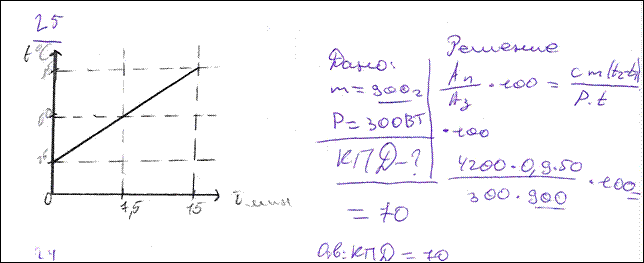 25
t°C
0
7,5
15
τ, мин
Дано:
m = 900г
P = 300ВТ
КПД - ?
Решение
Ап/Аз · 100 = cm(t₂-t₁)/P·t
· 100
4200 · 0,9 · 50 / 300 · 900 · 100
= 70
Ов: КПД = 70